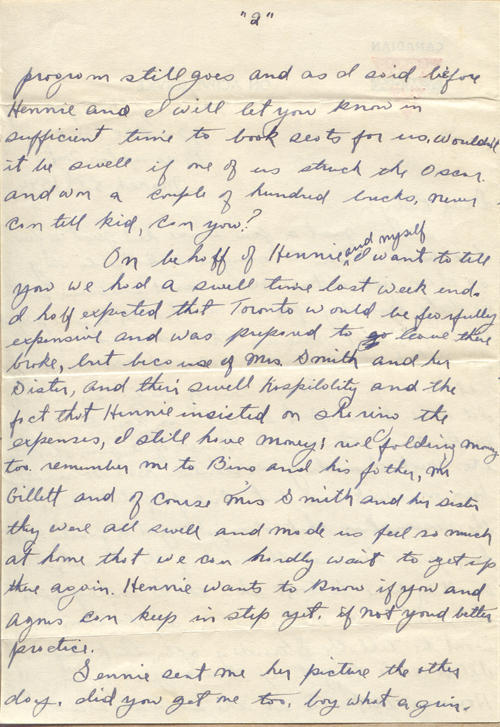 "2"
program still goes and as I said before
Hennie and I will let you know in
sufficient time to book seats for us. Wouldn't
it be swell if one of us struck the Oscar
and won a couple of hundred bucks. never
can tell kid, can you?
On behalf of Hennie and myself I want to tell
you we had a swell time last week end.
I half expected that Toronto would be fearfully
expensive and was prepared to go leave there
broke, but because of Mrs. Smith and her
Sister, and their swell hospitality and the
fact that Hennie insisted on sharing the
expenses, I still have money! real folding money
too. remember me to Bino and his father, Mr
Gillett and of course Mrs Smith and her sister
they were all swell and made us feel so much
at home that we can hardly wait to get up
there again. Hennie wants to know if you and
Agnes can keep in step yet. if not you'd better
practice.
Jennie sent me her picture the other
day. did you get one too. boy what a grin.